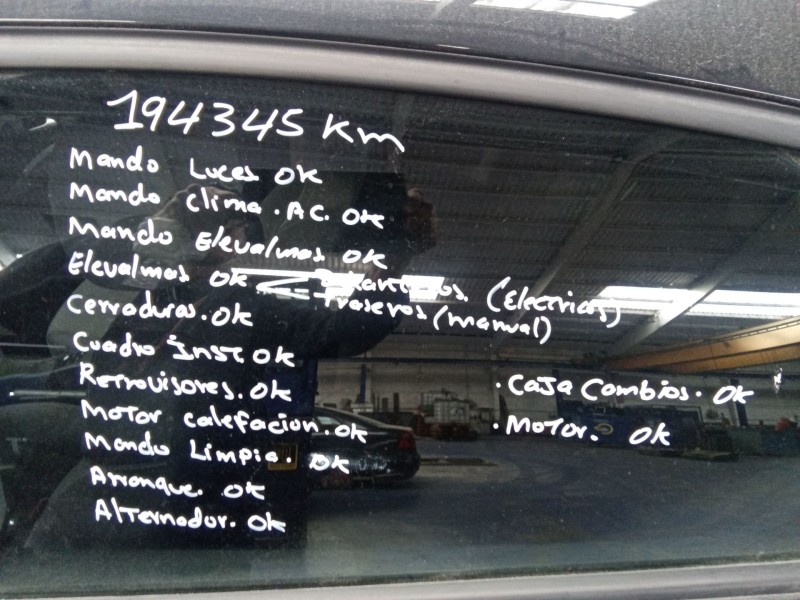 194345 Km
Mando Luces OK
Mando Clima. A.C. OK
Mando Elevalmas OK
Elevalmas OK Delanteros. (Electricos)
Traseros (manual)
Cerraduras. OK
Cuadro inst OK
Retrovisores. OK
Motor calefacion. OK
Mando Limpia. OK
Arranque. OK
Alternador. OK
. CaJa Cambios. OK
. Motor. OK